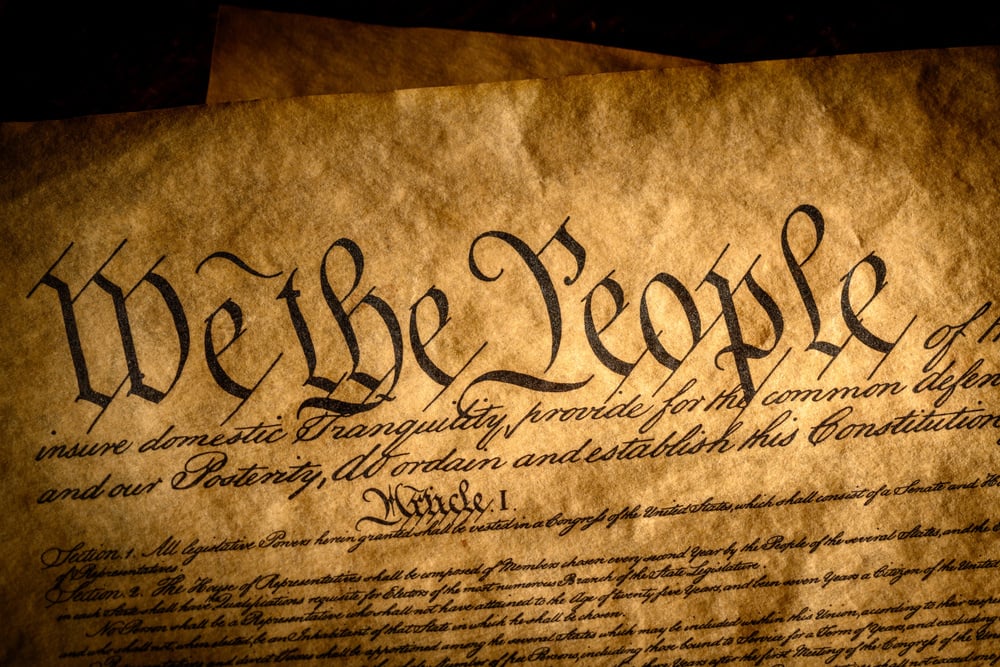 We the People
of
insure domestic Tranquility, provide for the common defen
and our Posterity, do ordain and establish this Constitution
Article. I.
Section. 1. All legislative Powers herein granted shall be vested in a Congress of the United States, which shall consist of a Senate and
of Representatives.
Section. 2. The House of Representatives shall be composed of Members chosen every second Year by the People of the several States, and the
in each State shall have Qualifications requisite for Electors of the most numerous Branch of the State Legislature.
No Person shall be a Representative who shall not have attained to the Age of twenty five Years, and been seven Years a Citizen of the United
and who shall not, when elected, be an Inhabitant of that State in which he shall be chosen.
and direct Taxes shall be apportioned among the several States which may be included within this Union, according to their respec
Number of free Persons, including those bound to Service for a Term of Years, and excluding
Years after the first Meeting of the Congress of the